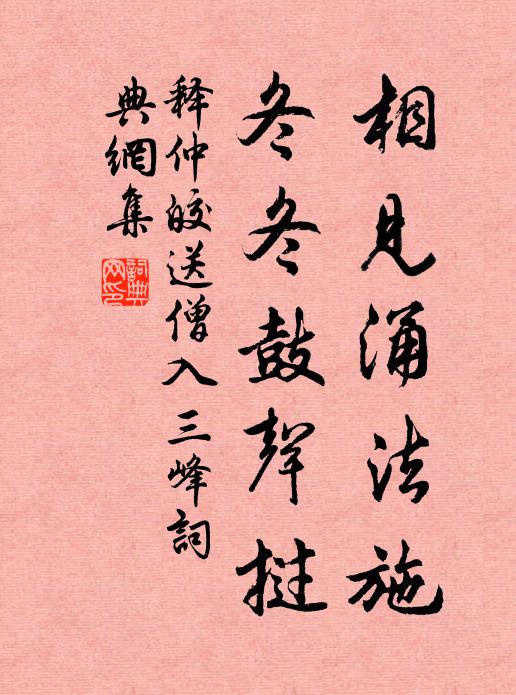 相見涌法施
冬冬鼓聲挝
释仲皎送僧入三峰詞
典網集
詞典
网印